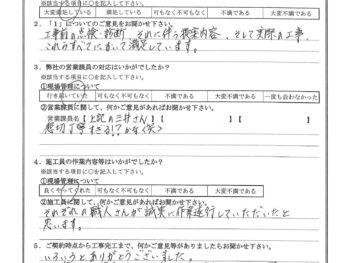 ※該当する項目に○を記入して下さい。
大変満足している 満足している 可もなく不可もなく 不満である 大変不満である
2．「1」についてのご意見をお聞かせ下さい。
工事前の点検・診断、それに伴う提案内容、そして実際の工事、
これらすべてにおいて満足しています。
3．弊社の営業課員の対応はいかがでしたか？
※該当する項目に○を記入して下さい。
①現場管理について
行き届いていた 可もなく不可もなく 不満である 大変不満である 一度も会わなかった
②営業課員に関して、何かご意見があればお聞かせ下さい。
営業課員名【上記の三井さん】
懇切丁寧すぎる!?かな(笑)
4．施工員の作業内容等はいかがでしたか？
※該当する項目に○を記入して下さい。
①現場管理について
良くやってくれた 可もなく不可もなく 不満である 大変不満である
②施工員に関して、何かご意見があればお聞かせ下さい。
それぞれの職人さんが誠実に作業遂行していただいたと
思います。
5．ご契約時点から工事完工まで、何かご意見等がありましたらお聞かせ下さい。
いろいろとありがとうございました。